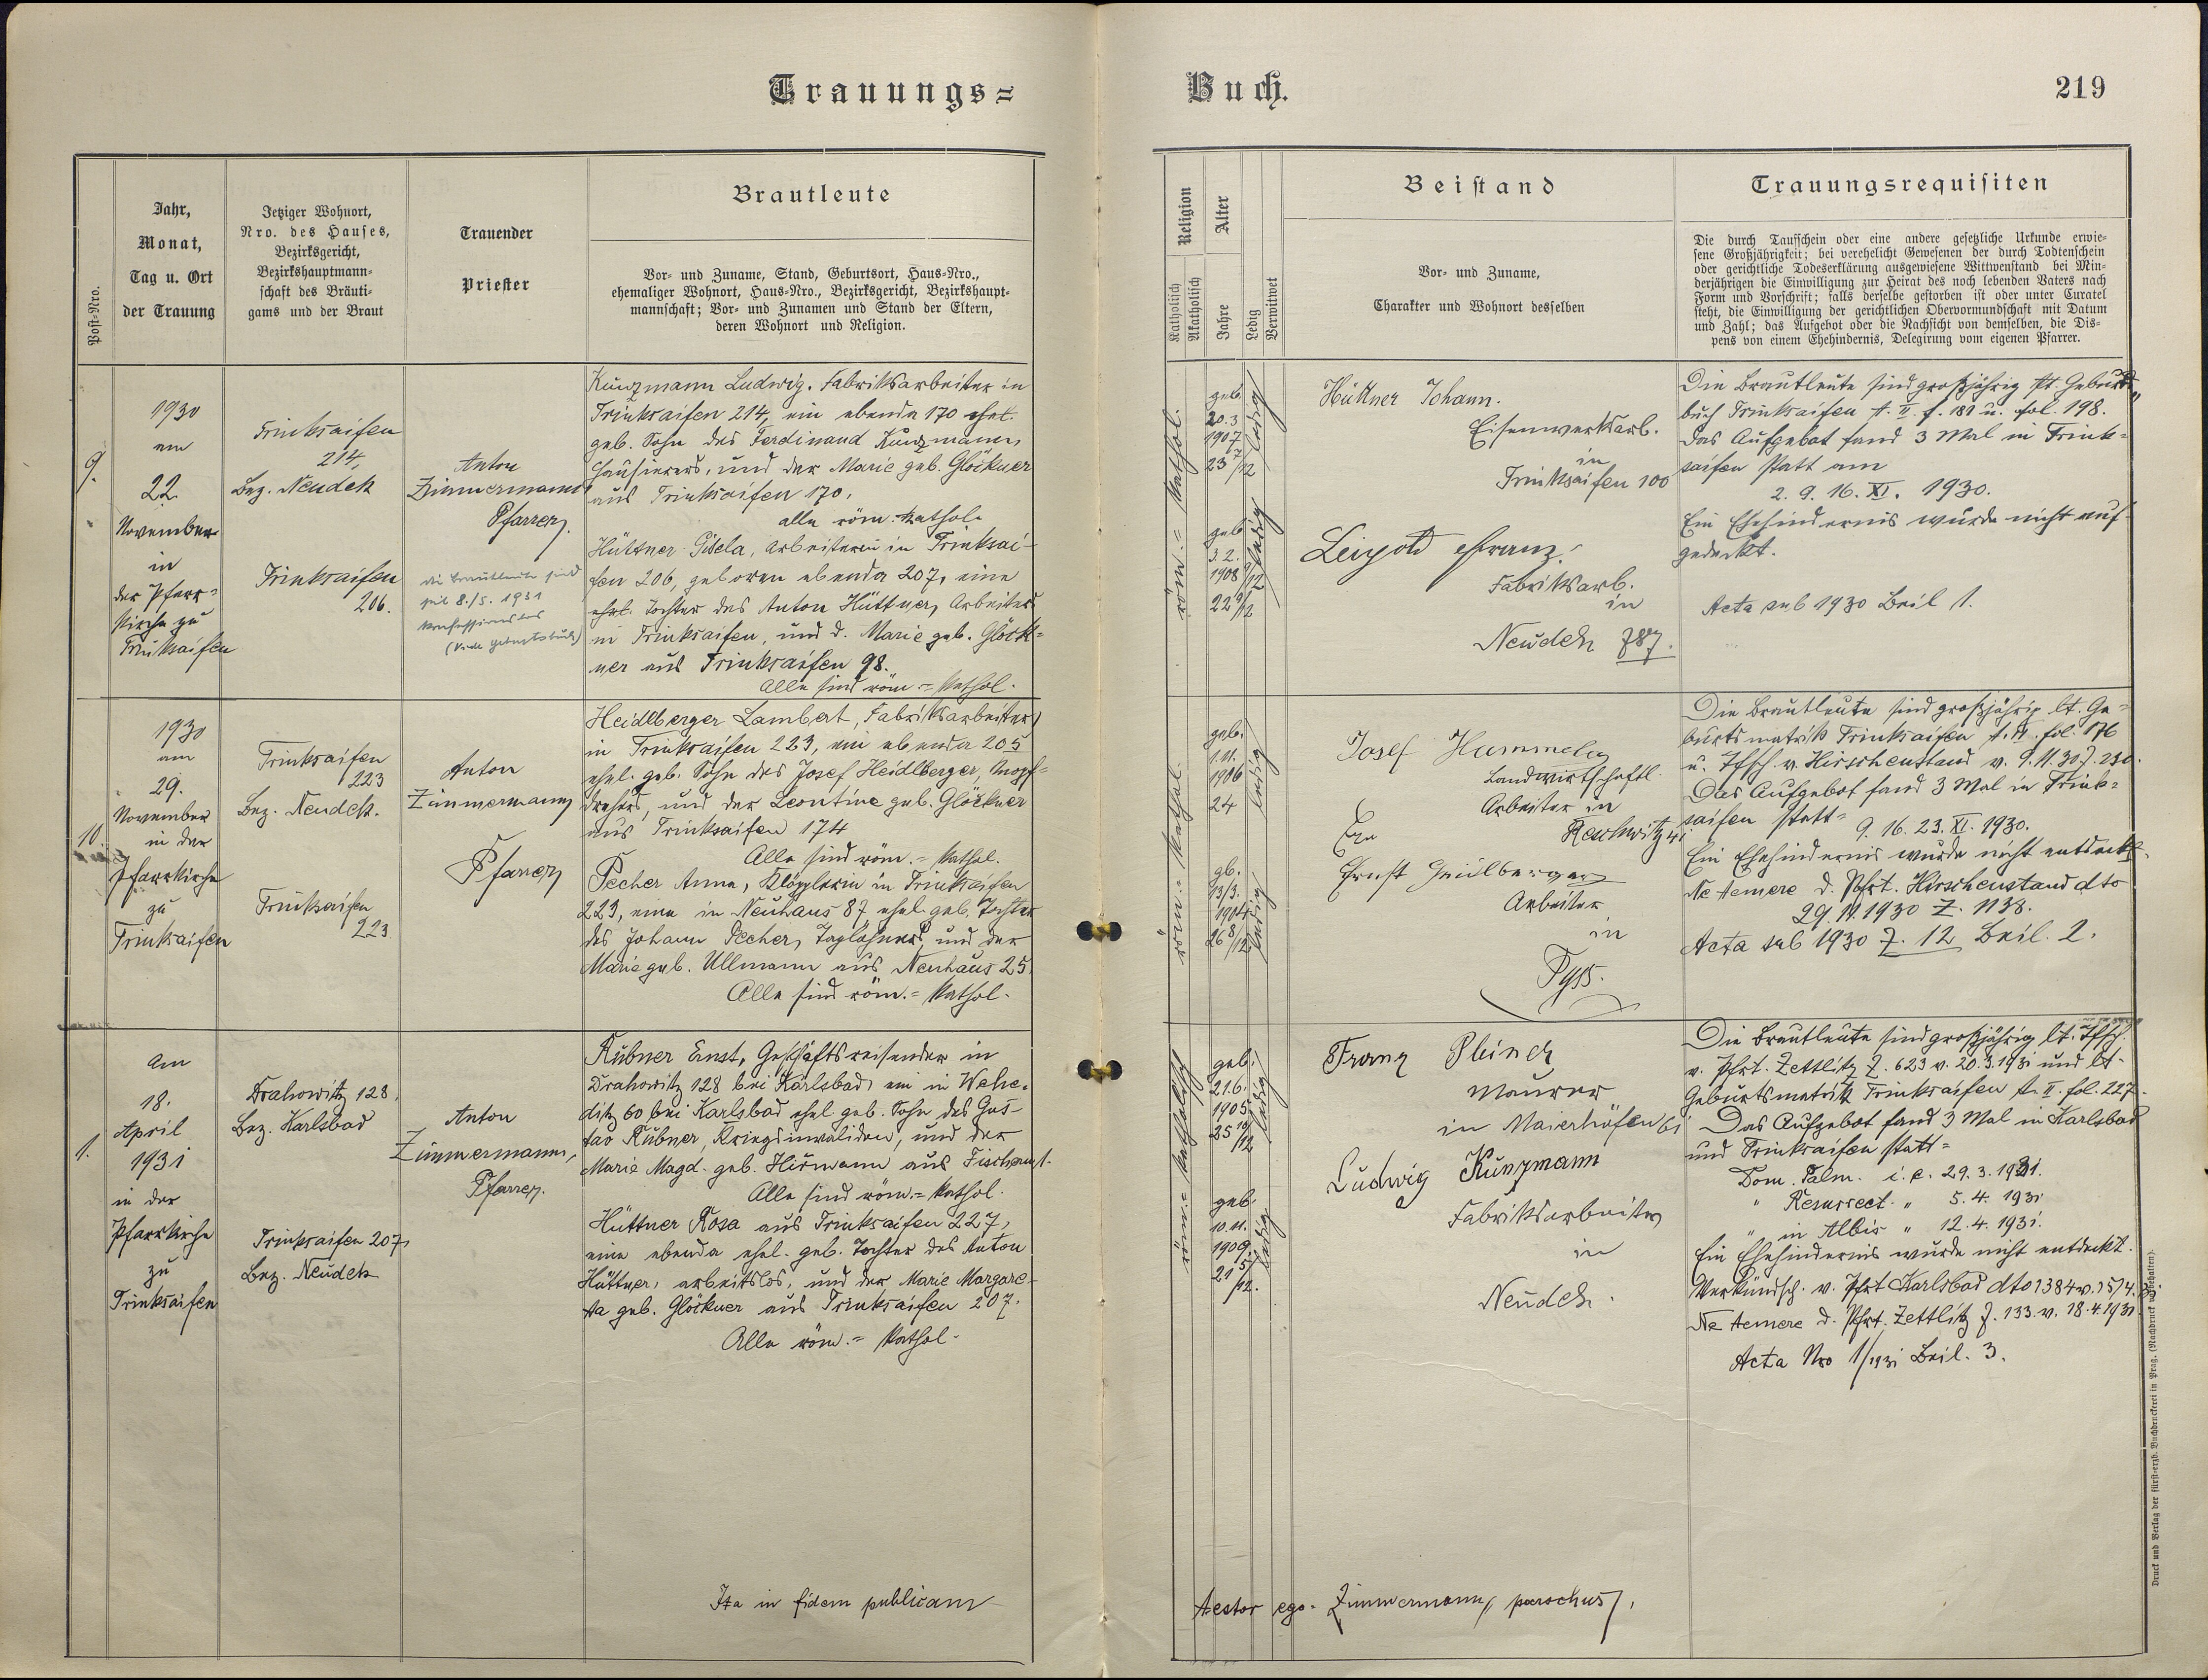 Trauungs=
Buch.
219
Post-Nro.
Jahr,
Monat,
Tag u. Ort
der Trauung
Jetziger Wohnort,
Nro. des Hauses,
Bezirksgericht,
Bezirkshauptmann-
schaft des Bräuti-
gams und der Braut
Trauender
Priester
Brautleute
Vor- und Zuname, Stand, Geburtsort, Haus-Nro.,
ehemaliger Wohnort, Haus-Nro., Bezirksgericht, Bezirkshaupt-
mannschaft; Vor- und Zunamen und Stand der Eltern,
deren Wohnort und Religion.
Religion
Katholisch
Akatholisch
Alter
Jahre
Ledig
Verwitwet
Beistand
Vor- und Zuname,
Charakter und Wohnort desselben
Trauungsrequisiten
Die durch Taufschein oder eine andere gesetzliche Urkunde erwie-
sene Großjährigkeit; bei verehelicht Gewesenen der durch Todtenschein
oder gerichtliche Todeserklärung ausgewiesene Wittwenstand bei Min-
derjährigen die Einwilligung zur Heirat des noch lebenden Vaters nach
Form und Vorschrift; falls derselbe gestorben ist oder unter Curatel
steht, die Einwilligung der gerichtlichen Obervormundschaft mit Datum
und Zahl; das Aufgebot oder die Nachsicht von demselben, die Dis-
pens von einem Ehehindernis, Delegirung vom eigenen Pfarrer.
9.
1930
am
22.
November
in
der Pfarr-
kirche zu
Trinksaifen
Trinksaifen
214,
Bez. Neudek
Trinksaifen
206.
Anton
Zimmermann
Pfarrer.
die Brautleute sind
seit 8./5. 1931
konfessionslos
(Vide Geburtsbuch)
Kunzmann Ludwig, Fabriksarbeiter in
Trinksaifen 214, ein ebenda 170 ehel.
geb. Sohn des Ferdinand Kunzmann,
Hausierers, und der Marie geb. Glöckner
aus Trinksaifen 170.
alle röm. kathol.
Hüttner Gisela, Arbeiterin in Trinksai-
fen 206, geboren ebenda 207, eine
ehel. Tochter des Anton Hüttner, Arbeiters
in Trinksaifen, und d. Marie geb. Glöck=
ner aus Trinksaifen 98.
Alle sind röm.= kathol.
röm.= kathol.
geb.
20.3.
1907
23 7/12
ledig
geb.
3.2.
1908
22 9/12
ledig
Hüttner Johann.
Eisenwerksarb.
in
Trinksaifen 100
Leipold Franz.
Fabriksarb.
in
Neudek 787.
Die Brautleute sind großjährig lt. Geburts-
buch Trinksaifen t. II. f. 181 u. fol. 198.
Das Aufgebot fand 3 Mal in Trink=
saifen statt am
2. 9. 16. XI. 1930.
Ein Ehehindernis wurde nicht auf-
gedeckt.
Acta sub 1930 Beil 1.
10.
1930
am
29.
November
in der
Pfarrkirche
zu
Trinksaifen
Trinksaifen
223
Bez. Neudek.
Trinksaifen
223
Anton
Zimmermann
Pfarrer
Heidlberger Lambert, Fabriksarbeiter
in Trinksaifen 223, ein ebenda 205
ehel. geb. Sohn des Josef Heidlberger, Knopf=
drehers, und der Leontine geb. Glöckner
aus Trinksaifen 174
Alle sind röm.= kathol.
Pecher Anna, Klöpplerin in Trinksaifen
223, eine in Neuhaus 87 ehel. geb. Tochter
des Johann Pecher, Taglöhners und der
Marie geb. Ullmann aus Neuhaus 25.
Alle sind röm.= kathol.
röm.= kathol.
geb.
1.11.
1906
24
ledig
gb.
13/3.
1904
26 8/12
ledig
Josef Hummel
Landwirtschaftl.
Arbeiter in
Ernst Heidlberger
Arbeiter
in
Die Brautleute sind großjährig lt. Ge=
burtsmatrik Trinksaifen t. II. fol. 176
u. Tfsch. v. Hirschenstand v. 9.11.30 Z. 230.
Das Aufgebot fand 3 Mal in Trink=
saifen statt=
9. 16. 23. XI. 1930.
Ein Ehehindernis wurde nicht entdeckt.
Ne temere d. Pfrt. Hirschenstand dto
29.11.1930 Z. 1138.
Acta sub 1930 Z. 12 Beil. 2.
1.
Am
18.
April
1931
in der
Pfarrkirche
zu
Trinksaifen
Drahowitz 128,
Bez. Karlsbad
Trinksaifen 207,
Bez. Neudek
Anton
Zimmermann,
Pfarrer.
Rübner Ernst, Geschäftsreisender in
Drahowitz 128 bei Karlsbad, ein in Wehe-
ditz 60 bei Karlsbad ehel. geb. Sohn des Gus-
tav Rübner, Kriegsinvaliden, und der
Marie Magd. geb. Hirmann aus Fischern.
Alle sind röm.= kathol.
Hüttner Rosa aus Trinksaifen 227,
eine ebenda ehel. geb. Tochter des Anton
Hüttner, arbeitslos, und der Marie Margare-
ta geb. Glöckner aus Trinksaifen 207.
Alle röm.= kathol.
röm.= katholisch
geb.
21.6.
1905
25 10/12
ledig
geb.
10.11.
1909
21 5/12.
ledig
Franz
Maurer
in Maierhöfen 61
Ludwig Kunzmann
Fabriksarbeiter
in
Neudek.
Die Brautleute sind großjährig lt. Tfsch.
v. Pfrt. Zettlitz Z. 623 v. 20.3.1931 und lt.
Geburtsmatrik Trinksaifen t. II. fol. 227.
Das Aufgebot fand 3 Mal in Karlsbad
und Trinksaifen statt=
Dom. Palm. i. e. 29.3.1931.
" Resurrect. " 5.4. 1931
" in Albis " 12.4.1931.
Ein Ehehindernis wurde nicht entdeckt.
Verkündsch. v. Pfrt Karlsbad dto 1384 v. 15/4. 31.
Ne temere d. Pfrt. Zettlitz Z. 133. v. 18.4.1931
Acta Nro 1/1931 Beil. 3.
Ita in fidem publicam
testor ego. Zimmermann, parochus.
Druck und Verlag der fürst-erzb. Buchdruckerei in Prag. (Nachdruck vorbehalten).